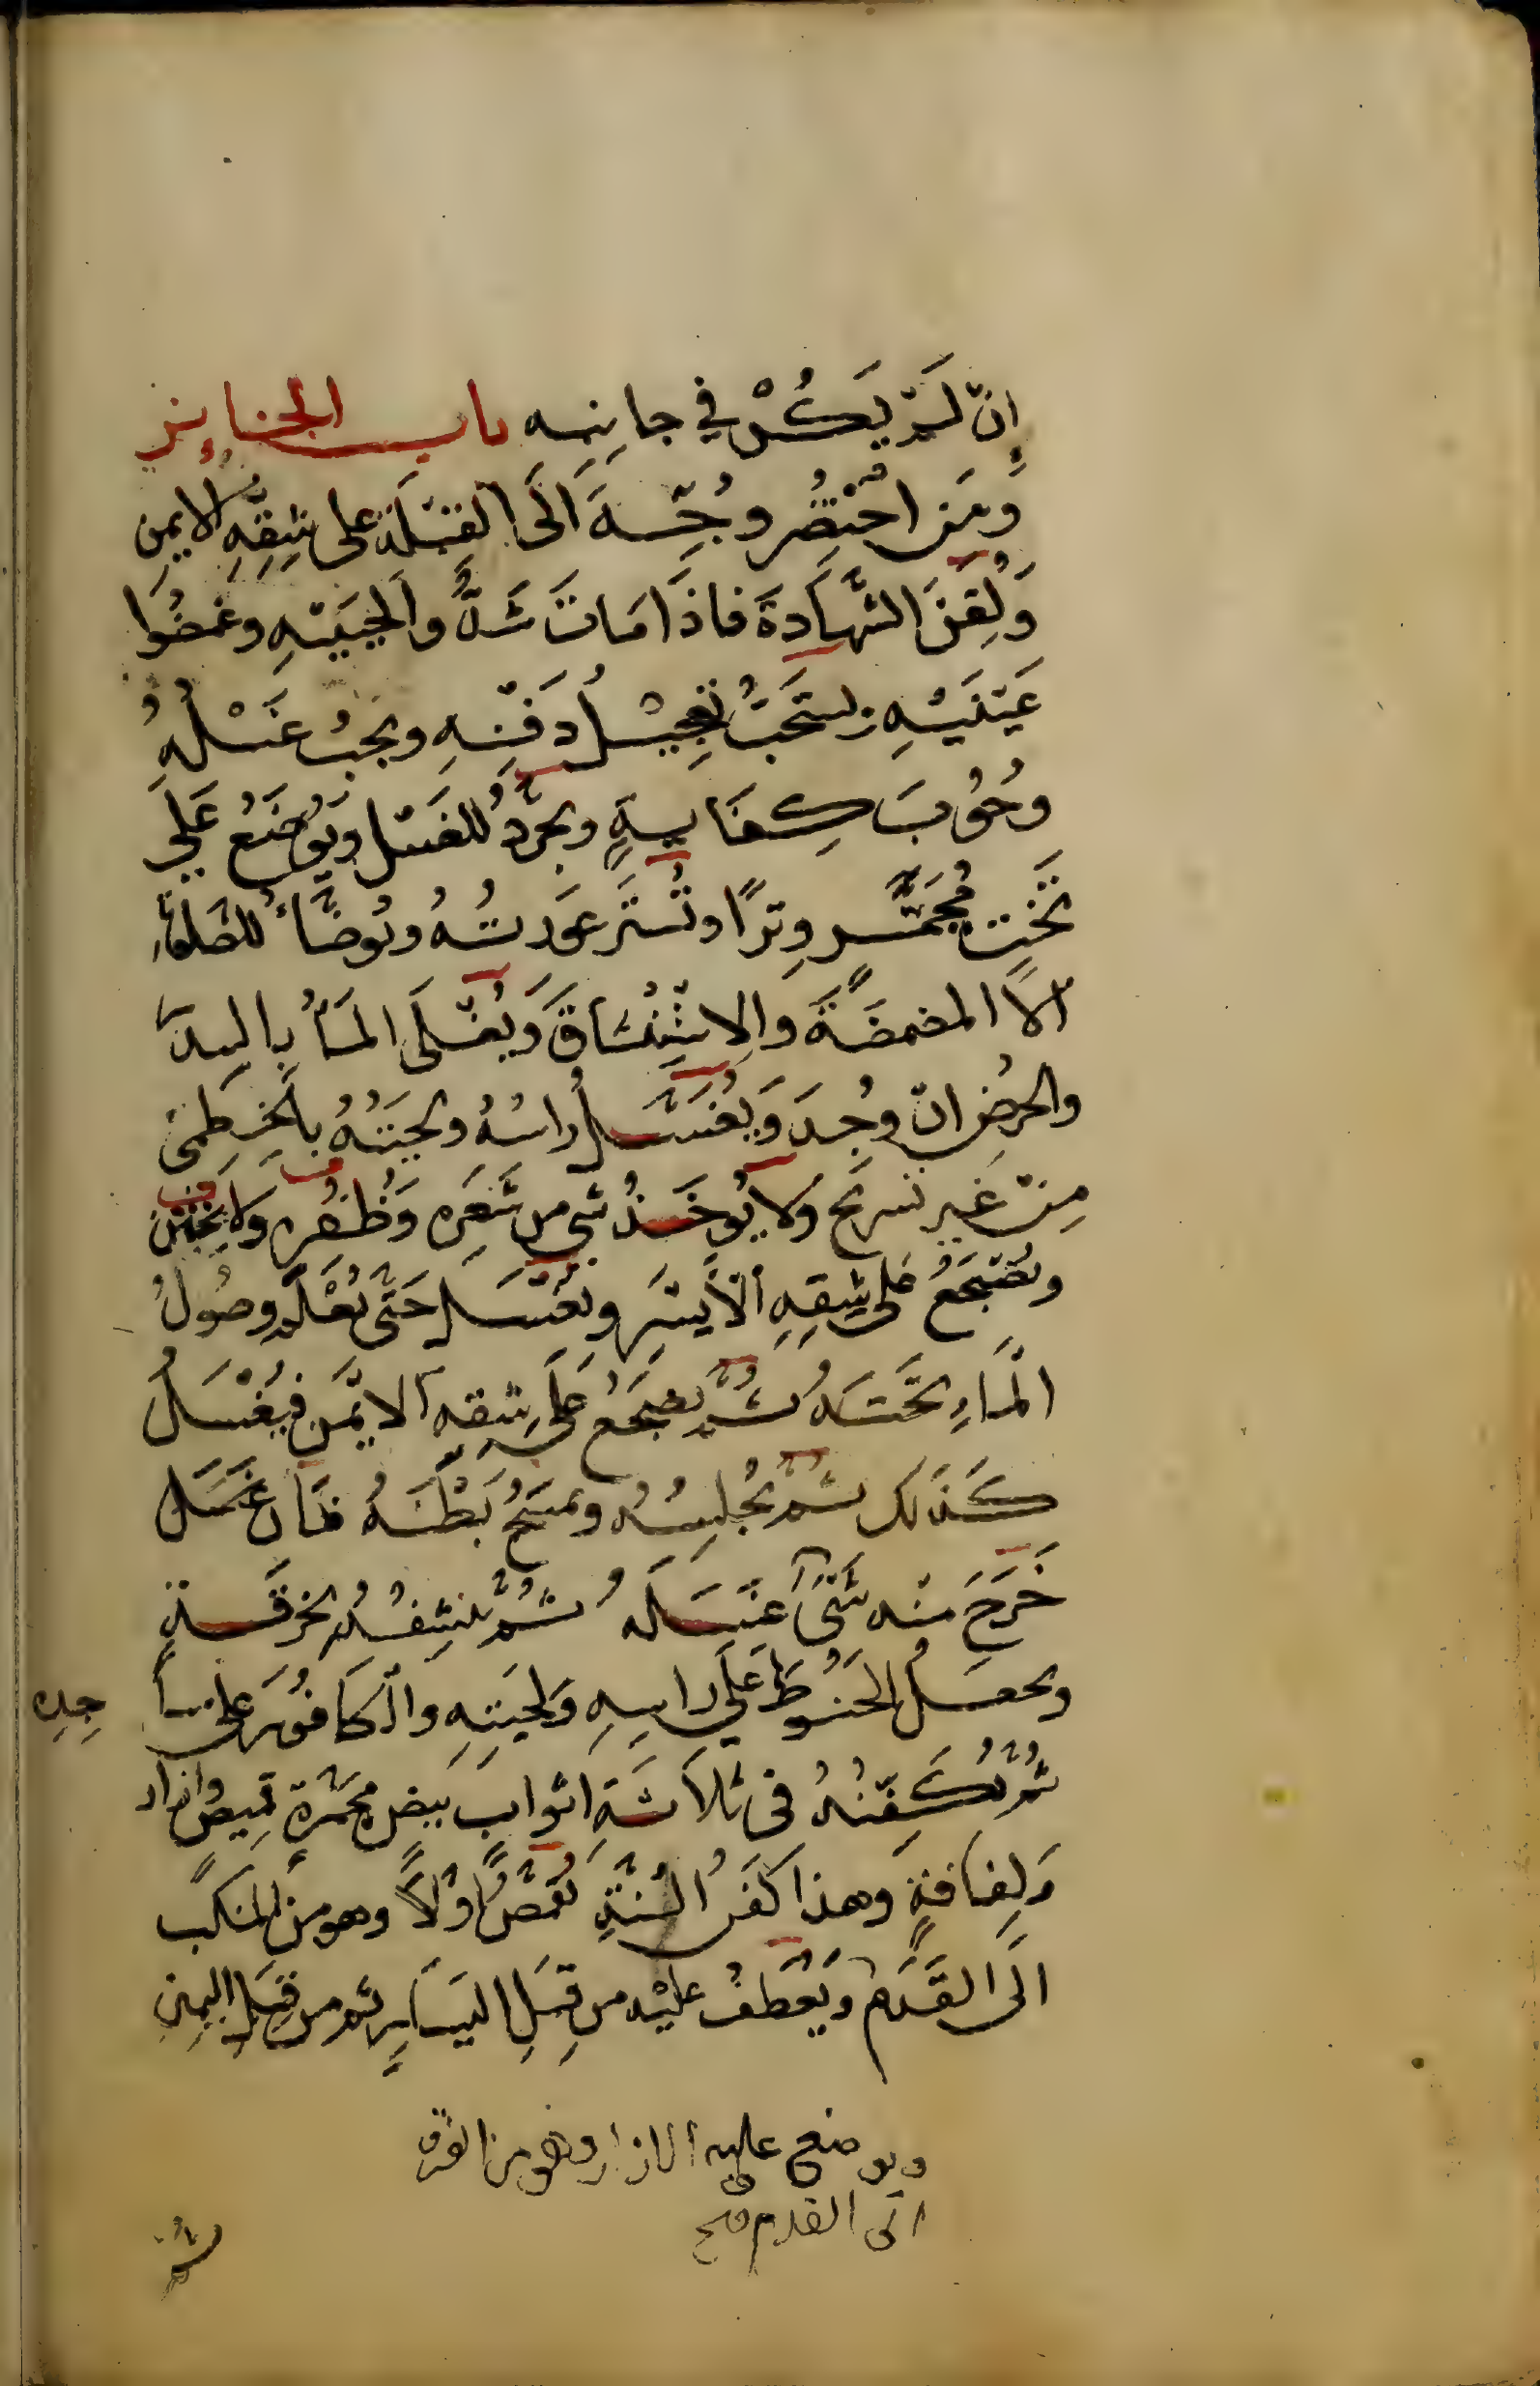 إنّ لَمّ يَكُنْ في جانِبِه باب الجنايز
وَمَن احْتُضِرَ وُجِّهَ اَلَى القِبْلَةِ على شِقِّهِ الايمن
وَلُقِنَ الشَّهَادَةَ فاذَا مَاتَ شَدُّوا لحيَيْهِ وغمضُوا
عَيْنَيْهِ ويستَحَبُّ تعجِيْلُ دَفْنِهِ ويجبُ غَسْلُهُ
وجُوْبَ كِفَايةٍ ويجرَّدُ للغَسْل ويَوُضَعُ عَلَي
تَخْتٍ مُجَمَّرٍ وِترًا وتُسْتَر عَورتُهُ ويُوضَّأُ للصَلوةِ
الّا المضمضَةَ والاِسْتِنْشَاقَ وَيُغْلَى المَأُ بالسدَر
والحرُض انْ وُجِدَ وَيُغْسَلُ راسُهُ ولحيَتُهُ بالخِطمى
مِنْ غَيرِ تسريح ولا يُوخَذُ شي من شَعَرِه وَظُفُرِه ولا يختن
ويُضْجَعُ عَلى شِقِهِ الأيْسَرِ ويُغْسَل حَتَّى يُعْلَم وصُولُ
المَاءِ تَحْتَهُ ثُمَّ يضجَعُ عَلَى شِقِهِ الايمَن فيُغْسَلُ
كَذَلِكَ ثُمَّ يُجْلِسُهُ ويَمْسَحُ بَطْنَهُ فَان غسَل
خَرَجَ منْه شَىْءٌ غَسَلَهُ ثُمَّ يُنَشِفُهُ بخرقَةٍ
ويجعلُ الحَنُوْطَ عَلَي راسِهِ وَلِحْيَتِهِ والْكَافُوَر على مسا جدِه
ثُمَّ يُكَفِّنُهُ فى ثلاثَةِ اثواب بيض مجَمَّرَةٍ قَمِيصٌ وازار
وَلِفَافَةٍ وهذا كَفَنُ السُنَّةِ يُقمَّصُ اوْلًا وهو من المنكب
الَى القَدَم وَيُعْطَفُ عليْه من قِبَلِ اليَسَارِ ثم من قِبَلِ اليمِنِ
ويوضع عليه الازار وهو من القرن
الى القدم صح
ثُمَّ